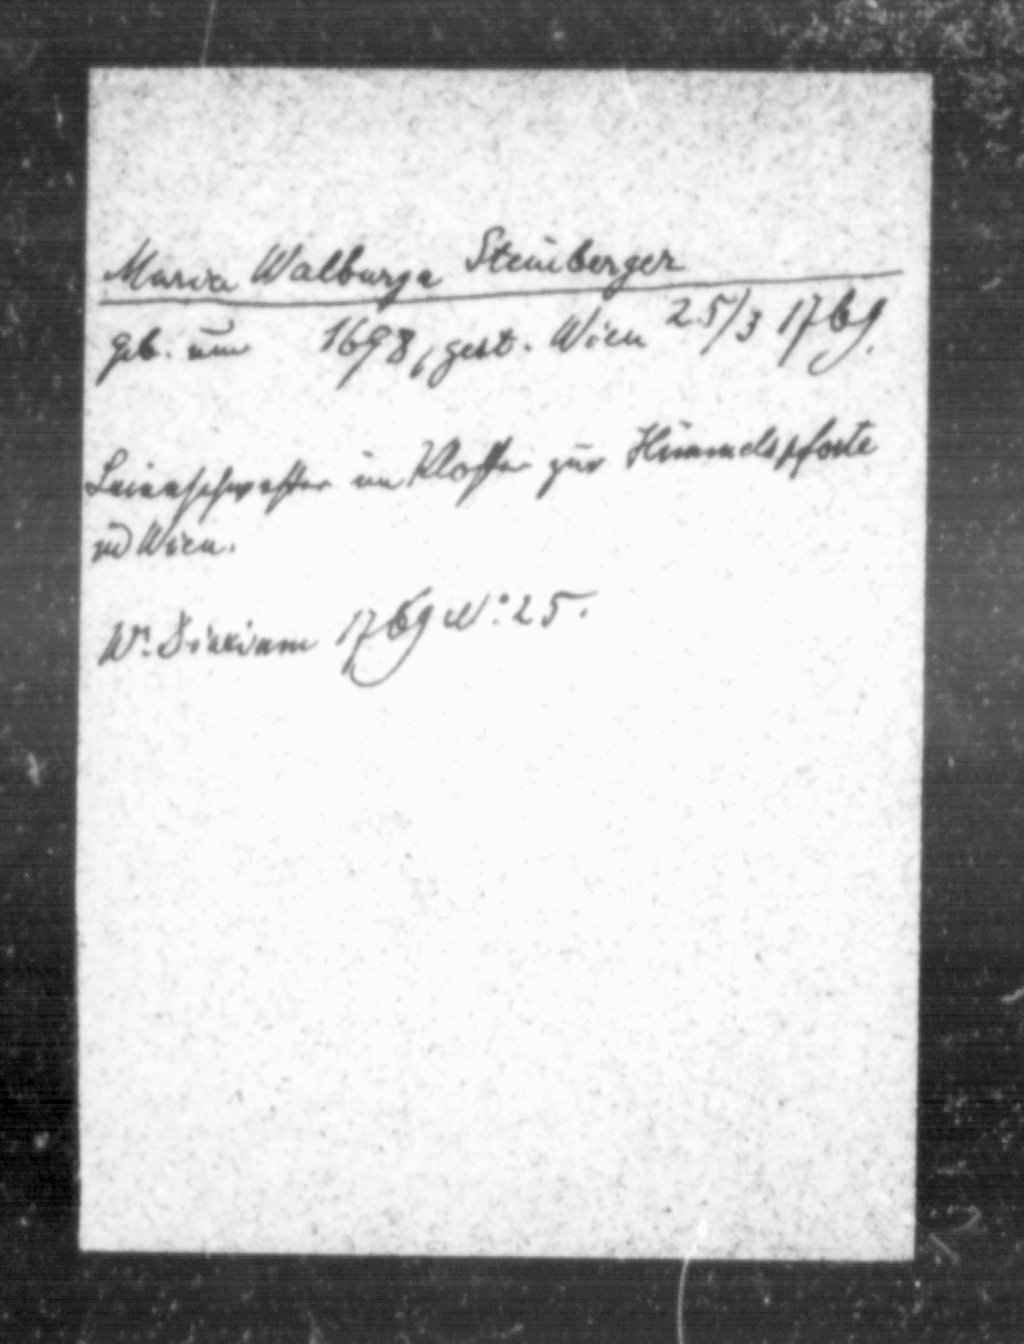 Maria Walburga Steinberger
geb. um 1698, gest. Wien 25/3 1769.
Laienschwester im Kloster zur Himmelspforte
zu Wien.
Wr. Diarium 1769 No: 25.